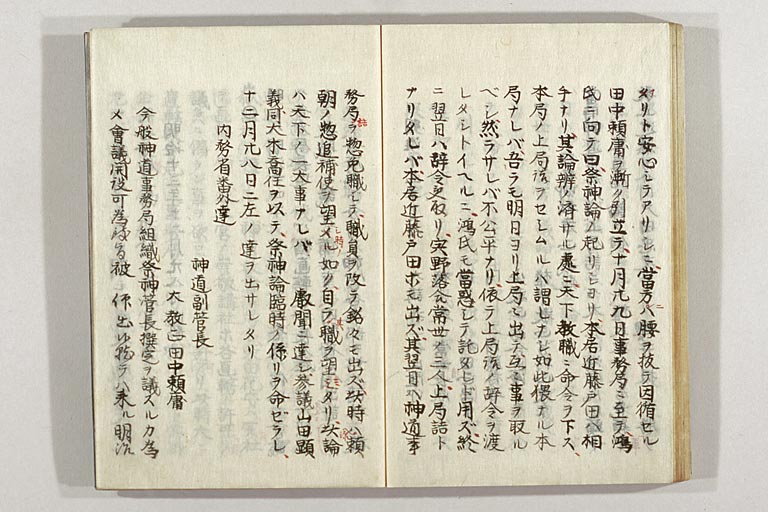 メリト安心シテアリシニ當方ハ腰ヲ抜テ因循セル
田中頼庸ヲ漸ク引立テ十月廿九日事務局ニ至テ鴻
氏ニ向テ曰祭神論ノ起リシヨリ本居近藤戸田ハ相
手ナリ其論辨ノ済サル處ニ天下教職ニ命令ヲ下ス
本局ノ上局詰ヲセシムルハ謂レナシ如此偎ナル本
局ナレバ吾ラモ明日ヨリ上局ニ出テ互ニ事ヲ取ル
ベシ然ラサレバ不公平ナリ依テ上局詰ノ辞令ヲ渡
レタシトイヘルニ鴻氏モ當惑シテ託タレド用ズ終
ニ翌日ハ辞令ヲ取リ宍野落合常世ホ三人上局詰ト
ナリタレバ本居近藤戸田ホモ出ズ其翌日ハ神道事
務局ヲ惣免職シテ職員ヲ改テ銘々モ出ズ此時ハ頼
朝ノ惣追補使ヲ望メル如ク自ラ職ヲ望ミタリ此論
ハ天下ノ一大事ナレバ嚴聞ニ達シ参議山田顕
義同大木喬任ヲ以テ祭神論臨時ノ係リヲ命ゼラレ
十二月廿八日ニ左ノ達ヲ出サレタリ
内務省番外達
神道副管長
大教正田中頼庸
今般神道事務局組織祭神管長撰定ヲ議スル為
メ會議開設可為致旨被 仰出候 ハ来ル明治